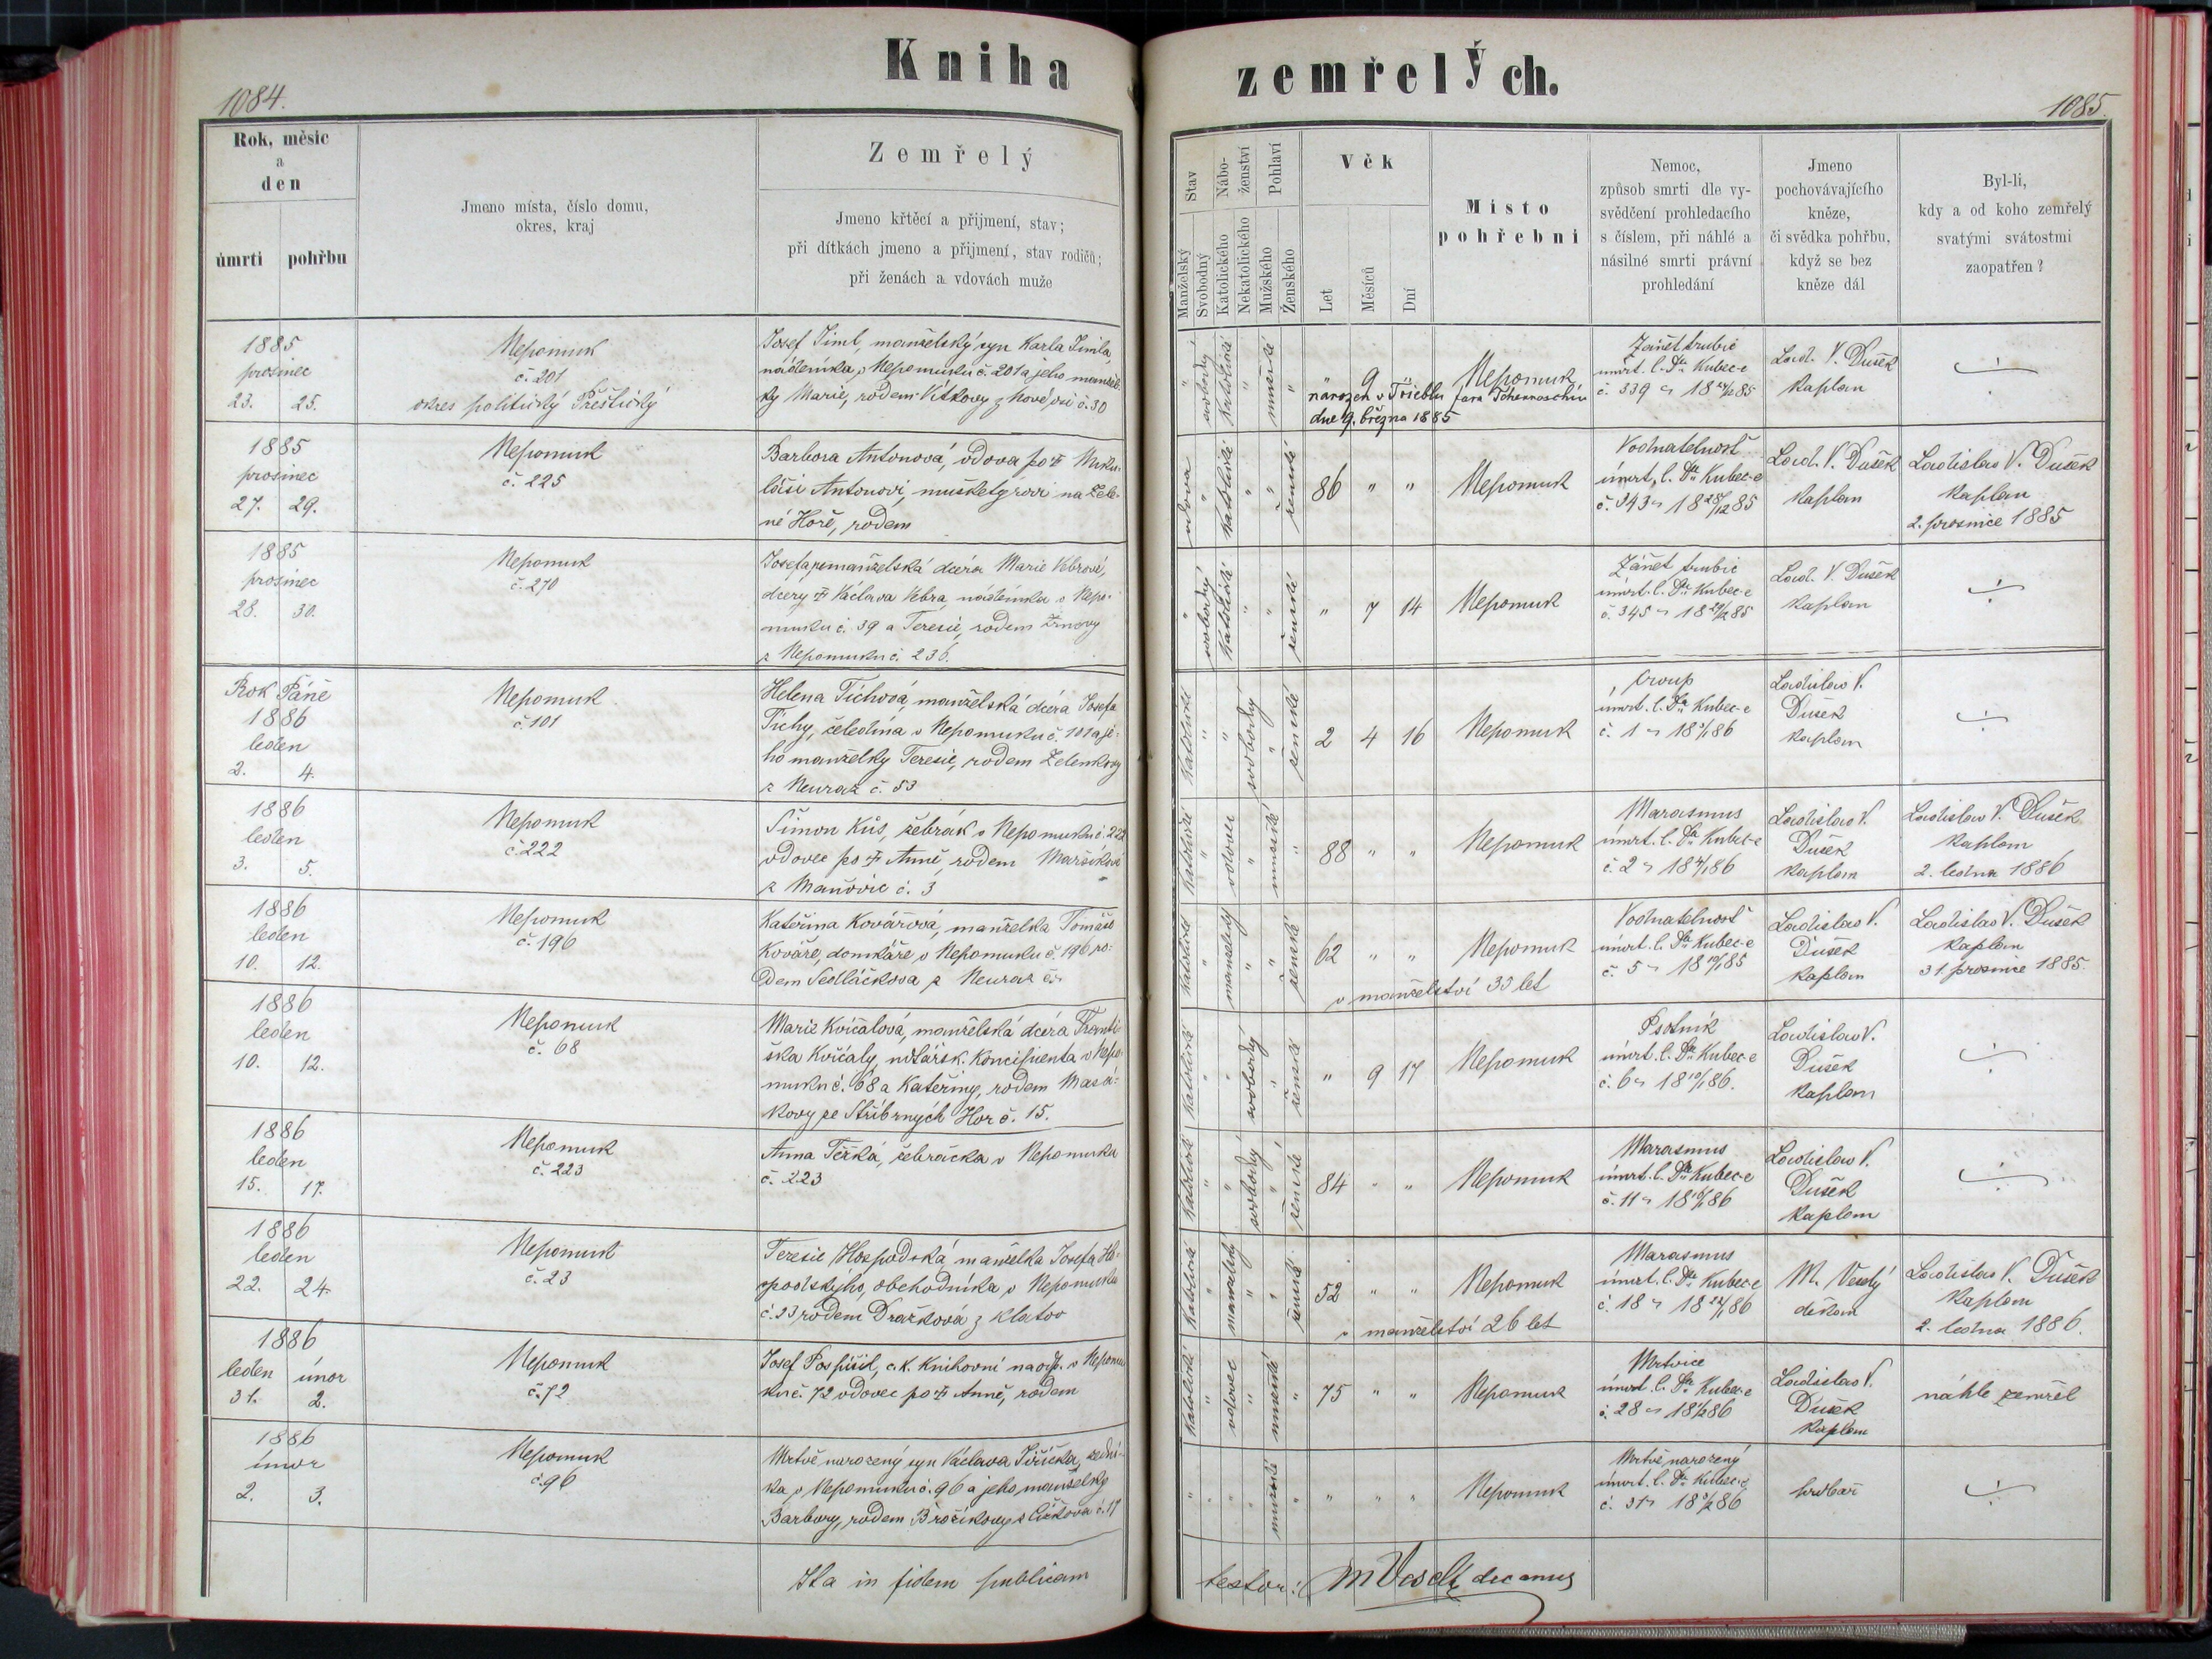 Kniha zemřelých.
1084.
1085.
Rok, měsíc
a
den
úmrtí
pohřbu
Jmeno místa, číslo domu,
okres, kraj
Zemřelý
Jmeno křtěcí a přijmení, stav;
při dítkách jmeno a přijmení, stav rodičů;
při ženách a vdovách muže
Stav
Manželský
Svobodný
Nábo-
ženství
Katolického
Nekatolického
Pohlaví
Mužského
Ženského
Věk
Let
Měsíců
Dní
Místo
pohřební
Nemoc,
způsob smrti dle vy-
svědčení prohledacího
s číslem, při náhlé a
násilné smrti právní
prohledání
Jmeno
pochovávajícího
kněze,
či svědka pohřbu,
když se bez
kněze dál
Byl-li,
kdy a od koho zemřelý
svatými svátostmi
zaopatřen?
1885
prosinec
23. 25.
Nepomuk
č. 201
okres politický Přeštický
Josef Jiml, manželský syn Karla Jimla,
nádeníka v Nepomuku č. 201 a jeho manžel-
ky Marie, rodem Vítkovy z Nové vsi č. 30
" svobodný katolické " mužské "
" 9
narozen v Třieblu fara Tschernoschin
dne 9. března 1885
Nepomuk
Zánět trubic
úmrt. l. Dra Kubec-e
č. 339 18 24/12 85
Lad. V. Dušek
kaplan
1885
prosinec
27. 29.
Nepomuk
č. 225
Barbora Antonová, vdova po † Miku-
láši Antonovi, mušketýrovi na Zele-
né Hoře, rodem
vdova " katolické " " ženské
86 " "
Nepomuk
Vodnatelnost
úmrt. l. Dra Kubec-e
č. 343 18 28/12 85
Lad. V. Dušek
kaplan
Ladislav V. Dušek
kaplan
2. prosince 1885
1885
prosinec
28. 30.
Nepomuk
č. 270
Josefa, nemanželská dcera Marie Vebrové,
dcery † Václava Vebra, nádeníka v Nepo-
muku č. 39 a Teresie, rodem
z Nepomuku č. 236.
" svobodný katolické " " ženské
" 7 14
Nepomuk
Zánět trubic
úmrt. l. Dra Kubec-e
č. 345 18 29/12 85
Lad. V. Dušek
kaplan
Rok Páně
1886
leden
2. 4.
Nepomuk
č. 101
Helena Tichová, manželská dcera Josefa
Tichy, čeledína v Nepomuku č. 101 a je-
ho manželky Teresie, rodem Zelenkovy
z Neuraz č. 53
katolické " " svobodný " ženské
2 4 16
Nepomuk
Croup
úmrt. l. Dra Kubec-e
č. 1 18 3/1 86
Ladislav V.
Dušek
kaplan
1886
leden
3. 5.
Nepomuk
č. 222
Šimon Kůs, žebrák v Nepomuku č. 222
vdovec po † Anně, rodem Maršíkově
z Maňovic č. 3
katolické " vdovec " mužské "
88 " "
Nepomuk
Marasmus
úmrt. l. Dra Kubec-e
č. 2 18 4/1 86
Ladislav V.
Dušek
kaplan
Ladislav V. Dušek
kaplan
2. ledna 1886
1886
leden
10. 12.
Nepomuk
č. 196
Kateřina Kovářová, manželka Tomáše
Kováře, domkáře v Nepomuku č. 196 ro-
dem Sedláčkova z Neuraz č.
katolické " manželský " " ženské
62 " "
v manželství 35 let
Nepomuk
Vodnatelnost
úmrt. l. Dra Kubec-e
č. 5 18 10/1 85
Ladislav V.
Dušek
kaplan
Ladislav V. Dušek
kaplan
31. prosince 1885.
1886
leden
10. 12.
Nepomuk
č. 68
Marie Kvíčalová, manželská dcera Franti-
ška Kvíčaly, notářsk. koncipienta v Nepo-
muku č. 68 a Kateřiny, rodem Masá-
kovy ze Stříbrných Hor č. 15.
katolické " " svobodný " ženské
" 9 17
Nepomuk
Psotník
úmrt. l. Dra Kubec-e
č. 6 18 10/1 86.
Ladislav V.
Dušek
kaplan
1886
leden
15. 17.
Nepomuk
č. 223
Anna Težká, žebračka v Nepomuku
č. 223
katolické " " svobodný " ženské
84 " "
Nepomuk
Marasmus
úmrt. l. Dra Kubec-e
č. 11 18 16/1 86
Ladislav V.
Dušek
kaplan
1886
leden
22. 24.
Nepomuk
č. 23
Teresie Hospodská, manželka Josefa Ho-
spodského, obchodníka v Nepomuku
č. 23 rodem Dražková z Klatov
katolické " manželský " " ženské
52 " "
v manželství 26 let
Nepomuk
Marasmus
úmrt. l. Dra Kubec-e
č. 18 18 22/1 86
M. Veselý
děkan
Ladislav V. Dušek
kaplan
2. ledna 1886.
1886
leden únor
31. 2.
Nepomuk
č. 72
Josef Pospíšil, c. k. knihovní na odp. v Nepomu-
ku č. 72 vdovec po † Anně, rodem
katolické " vdovec " mužské "
75 " "
Nepomuk
Mrtvice
úmrt. l. Dra Kubec-e
č. 28 18 1/2 86
Ladislav V.
Dušek
kaplan
náhle zemřel
1886
únor
2. 3.
Nepomuk
č. 96
Mrtvě narozený syn Václava Jiříčka, zední-
ka v Nepomuku č. 96 a jeho manželky
Barbory, rodem Brožíkovy z Čížkova č. 17
" " " " mužské "
" " "
Nepomuk
Mrtvě narozený
úmrt. l. Dra Kubec-e
č. 31 18 3/2 86
hrobař
Ita in fidem publicam
testor: M Veselý decanus